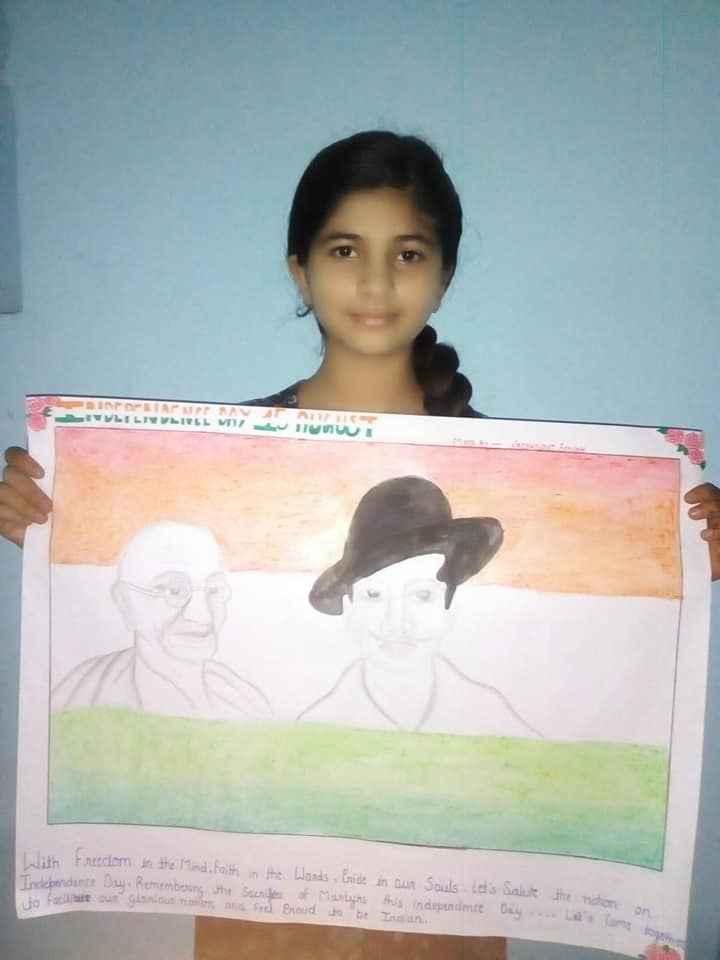 INDEPENDENCE DAY 15 AUGUST
Made by —
With Freedom in the Mind, Faith in the Words, Pride in our Souls. Let's Salute the nation on
Independence Day. Remembering the Sacrifies of Martyrs this independence Day .... Let's Come together
to Facilitate our glorious nation and Feel Proud to be Indian.